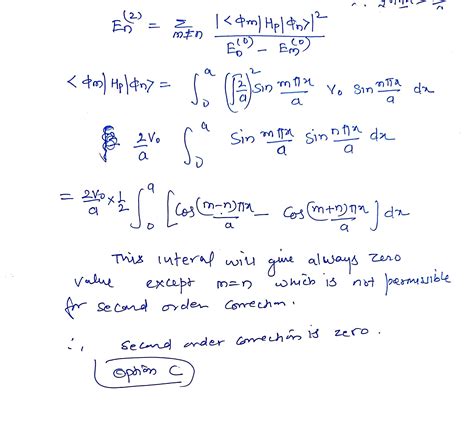 ∴ 
E_n^(2) = Σ_{m≠n} |<φm|Hp|φn>|² / E_n^(0) - E_m^(0)
<φm|Hp|φn> = ∫_0^a (√(2/a))² sin mπx/a V₀ sin nπx/a dx
2V₀/a ∫_0^a sin mπx/a sin nπx/a dx
= 2V₀/a × 1/2 ∫_0^a [cos (m-n)πx/a - cos (m+n)πx/a] dx
This interal will give always zero
value except m=n which is not permissible
for second order correction.
∴ second order correction is zero.
Option C